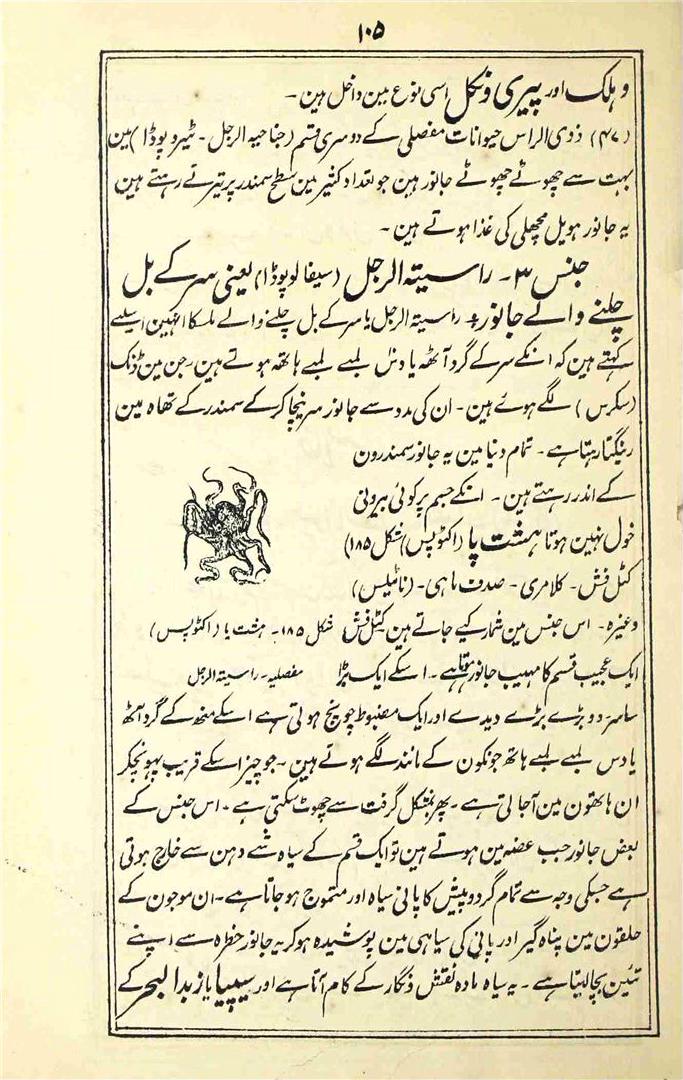 ۱۰۵
وہلک اور پیری ونکل اسی نوع مین داخل ہین۔
(۴۷) ذوی الراس حیوانات مفصلی کے دوسری قسم (جناحیہ الرجل۔ ٹیروپوڈا) مین
بہت سے چھوٹے چھوٹے جانور ہین جو بتعداد کثیر مین سطح سمندر پر تیرتے رہتے ہین
یہ جانور ہویل مچھلی کی غذا ہوتے ہین۔
جنس ۳۔ راسیتہ الرجل (سیفالوپوڈا) یعنی سر کے بل
چلنے والے جانور + راسیتہ الرجل یا سر کے بل چلنے والے ملسکا انہین اسلیے
کہتے ہین کہ انکے سر کے گرد آٹھ یا دس لمبے لمبے ہاتھ ہوتے ہین۔ جن مین ڈنک
(سکرس) لگے ہوئے ہین۔ ان کی مدد سے جانور سر نیچا کر کے سمندر کے تھاہ مین
رینگتا رہتا ہے۔ تمام دنیا مین یہ جانور سمندرون
کے اندر رہتے ہین۔ انکے جسم پر کوئی بیرونی
خول نہین ہوتا ہشت پا (اکٹوپس) شکل ۱۸۵)
کٹل فش۔ کلامری۔ صدف ماہی۔ (ناٹیلس)
وغیرہ۔ اس جنس مین شمار کیے جاتے ہین کٹل فش
شکل ۱۸۵۔ ہشت پا (اکٹوپس)
مفصلیہ۔ راسیتہ الرجل
ایک عجیب قسم کا مہیب جانور ہوتا ہے۔ اسکے ایک بڑا
سا سر دو بڑے بڑے دیدے اور ایک مضبوط چونچ ہوتی ہے اسکے منھ کے گرد آٹھ
یا دس لمبے لمبے ہاتھ جونکون کے مانند لگے ہوتے ہین۔ جو چیز اسکے قریب پہونچکر
ان ہاتھون مین آجاتی ہے۔ پھر بمشکل گرفت سے چھوٹ سکتی ہے۔ اس جنس کے
بعض جانور جب غصہ مین ہوتے ہین تو ایک قسم کے سیاہ شے دہن سے خارج ہوتی
ہے جسکی وجہ سے تمام گرد و پیش کا پانی سیاہ اور متموج ہو جاتا ہے۔ ان موجون کے
حلقون مین پناہ گیر اور پانی کی سیاہی مین پوشیدہ ہو کر یہ جانور خطرہ سے اپنے
تئین بچا لیتا ہے۔ یہ سیاہ مادہ نقش و نگار کے کام آتا ہے اور سیپیا یا زبد البحر کے